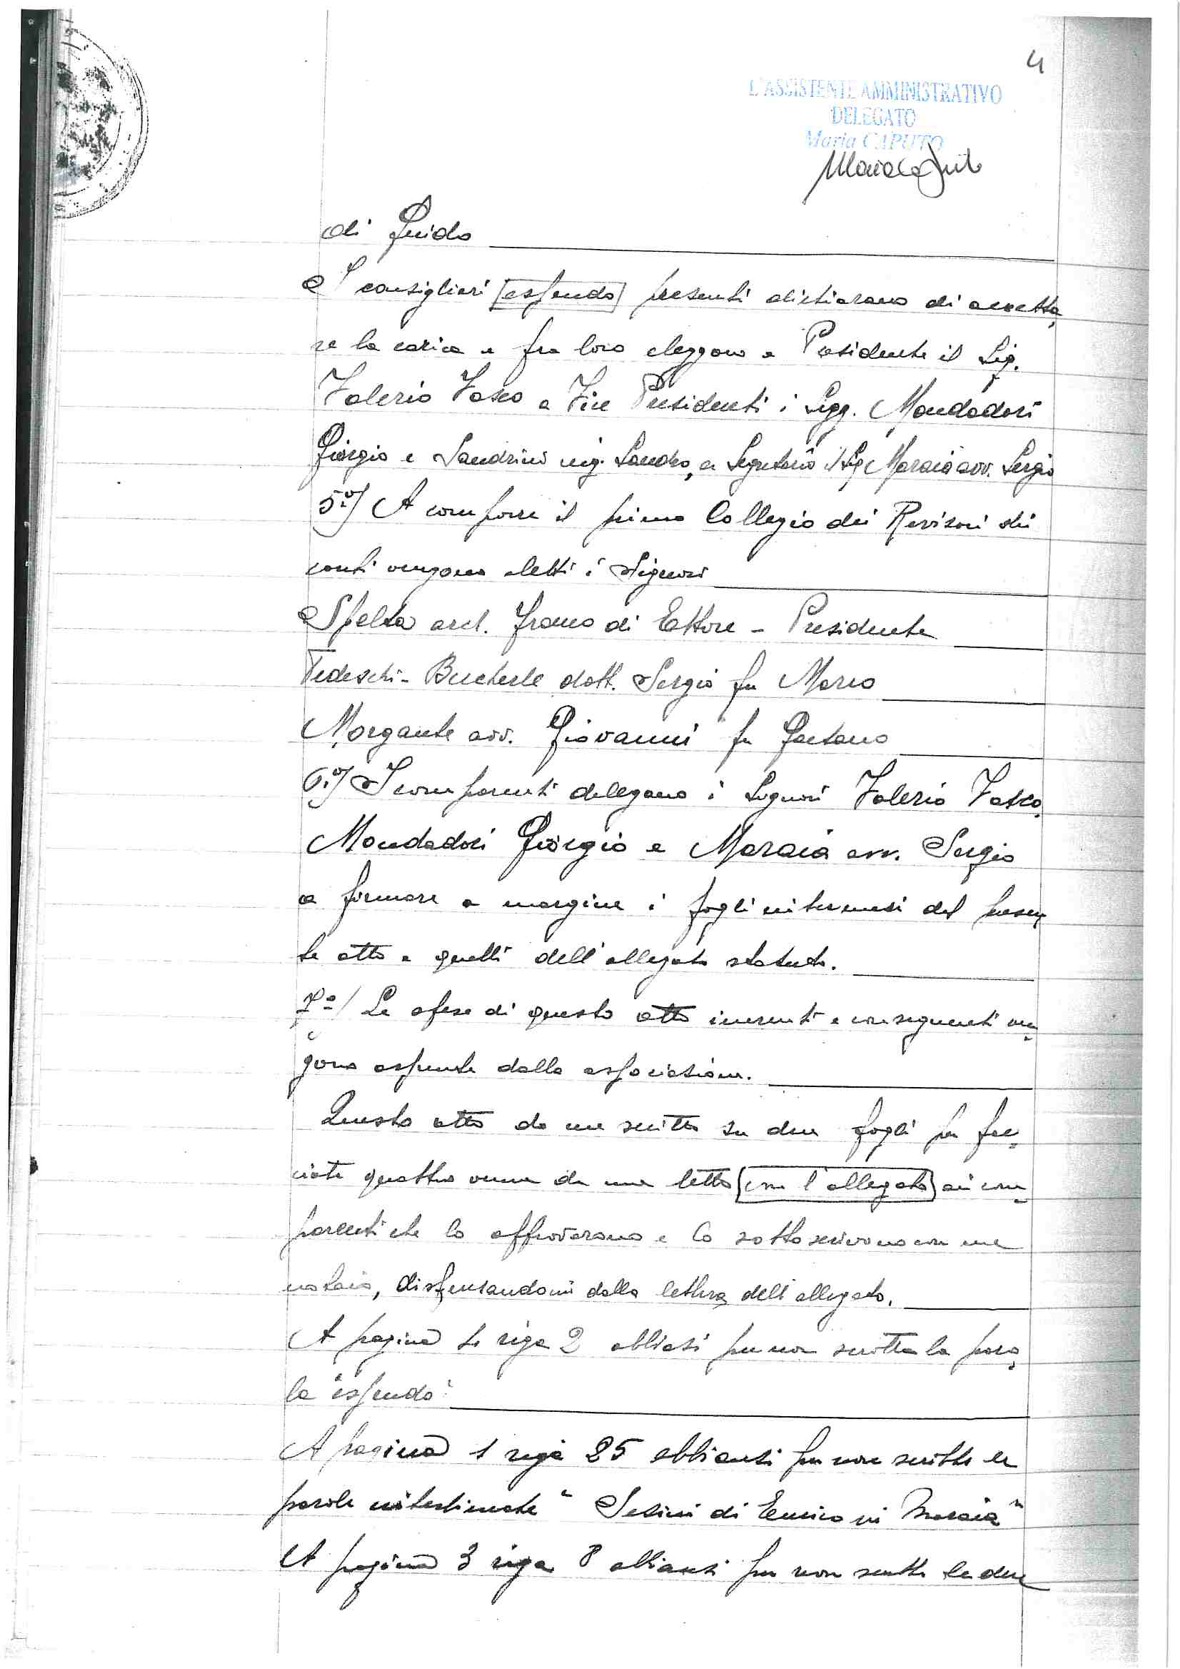 4
L'ASSISTENTE AMMINISTRATIVO
DELEGATO
Maria CAPUTO
di Guido
I consiglieri essendo presenti dichiarano di accetta
re la carica e fra loro eleggono a Presidente il Sig.
Valerio Vasco a Vice Presidenti i Sigg. Mondadori
Giorgio e Sandrini ing. Sandro, a Segretario il Sig. Maraia avv. Sergio
5°) A comporre il primo Collegio dei Revisori dei
conti vengono eletti i Signori
Spelta arch. Franco di Ettore - Presidente
Tedeschi - Bucherle dott. Sergio fu Marco
Morgante avv. Giovanni fu Gaetano
6°) I comparenti delegano i Signori Valerio Vasco,
Mondadori Giorgio e Maraia avv. Sergio
a firmare a margine i fogli intermedi del presen
te atto e quelli dell'allegato statuto.
7°) Le spese di questo atto inerenti e conseguenti ven
gono assunte dalla associazione.
Questo atto da me scritto su due fogli per fac
ciate quattro viene da me letto con l'allegato ai com
parenti che lo approvarono e lo sottoscrivono con me
notaio, dispensandomi dalla lettura dell'allegato.
A pagina 4 riga 2 abbiasi per non scritta la paro
la "essendo"
A pagina 1 riga 25 abbiansi per non scritte le
parole interlineate " di Enrico in Maraia"
A pagina 3 riga 8 abbiansi per non scritte le due